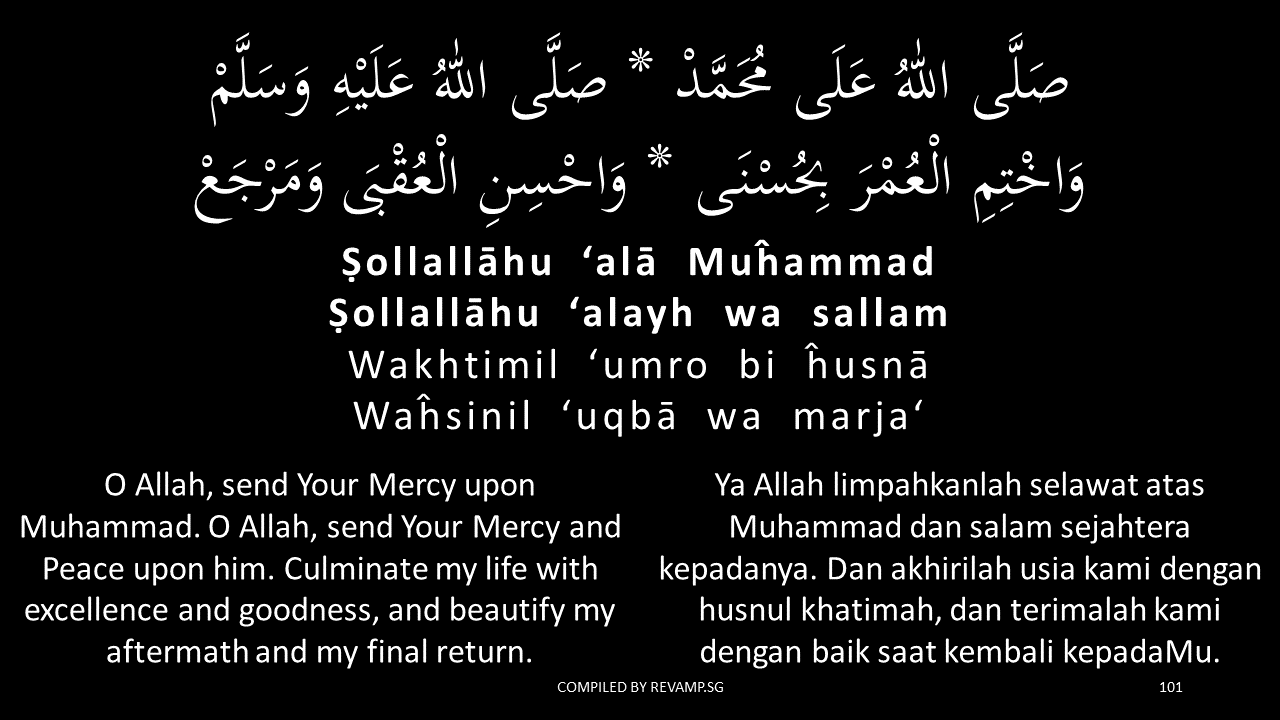 صَلَّى اللهُ عَلَى مُحَمَّدْ * صَلَّى اللهُ عَلَيْهِ وَسَلَّمْ
وَاخْتِمِ الْعُمْرَ بِحُسْنَى * وَاحْسِنِ الْعُقْبَى وَمَرْجَعْ
Ṣollallāhu ‘alā Muĥammad
Ṣollallāhu ‘alayh wa sallam
Wakhtimil ‘umro bi ĥusnā
Waĥsinil ‘uqbā wa marja‘
O Allah, send Your Mercy upon
Muhammad. O Allah, send Your Mercy and
Peace upon him. Culminate my life with
excellence and goodness, and beautify my
aftermath and my final return.
Ya Allah limpahkanlah selawat atas
Muhammad dan salam sejahtera
kepadanya. Dan akhirilah usia kami dengan
husnul khatimah, dan terimalah kami
dengan baik saat kembali kepadaMu.
COMPILED BY REVAMP.SG
101